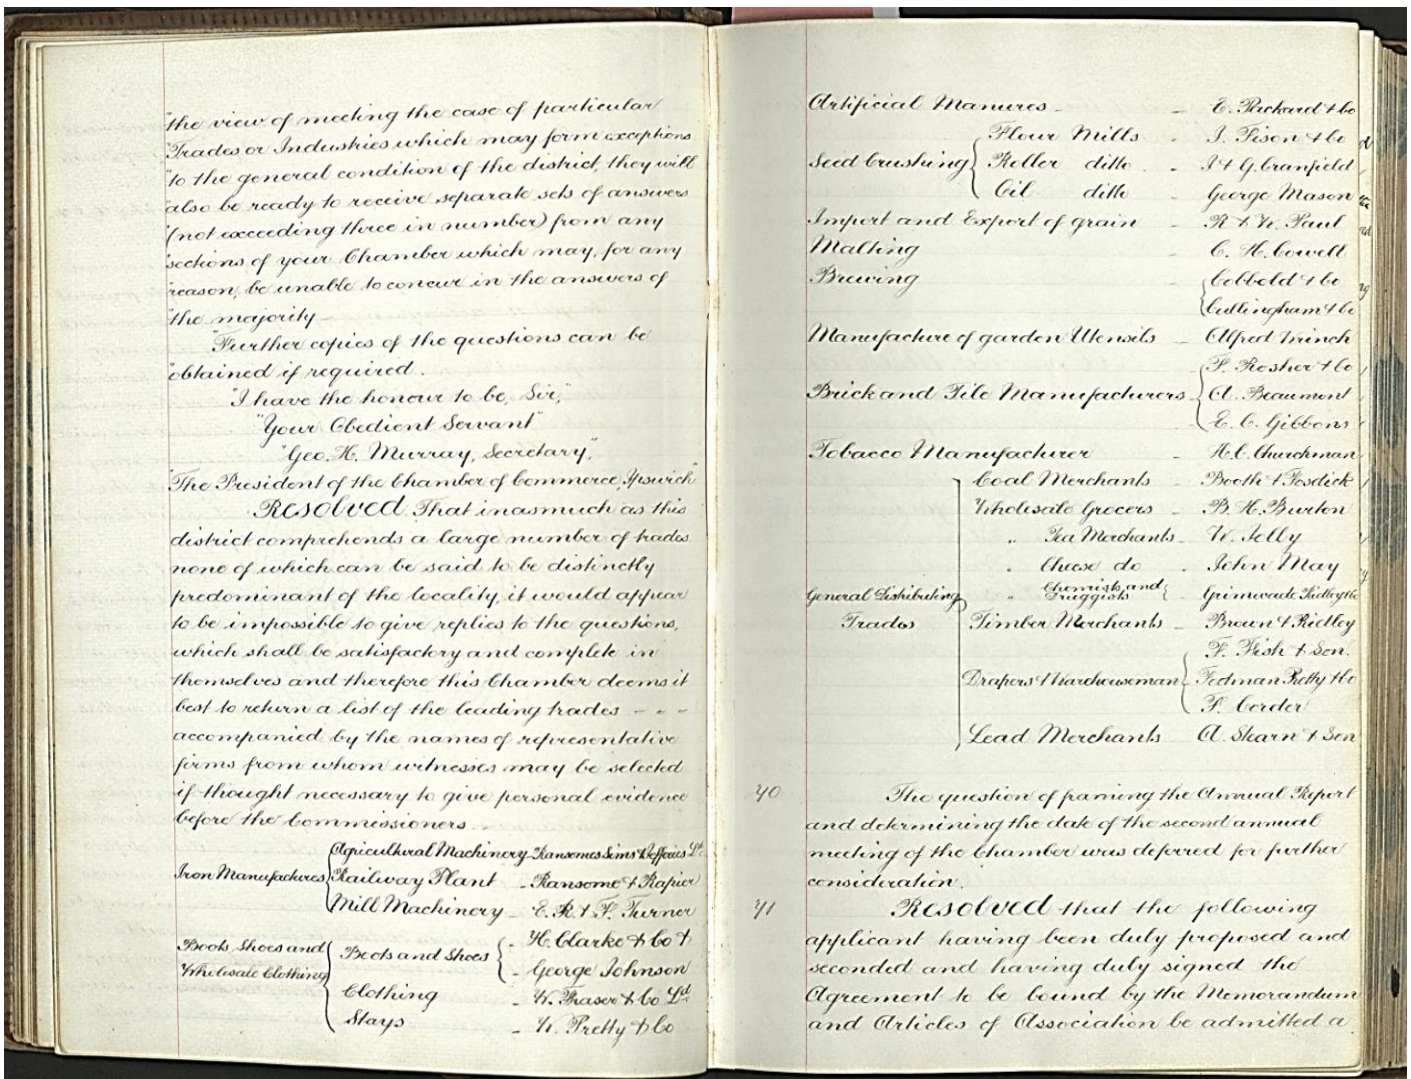 "the view of meeting the case of particular
"Trades or Industries which may form exceptions
"to the general condition of the district, they will
"also be ready to receive separate sets of answers
"(not exceeding three in number) from any
"sections of your Chamber which may, for any
"reason, be unable to concur in the answers of
"the majority
"Further copies of the questions can be
"obtained if required.
"I have the honour to be, Sir,"
"Your Obedient Servant"
"Geo. H. Murray, Secretary,"
"The President of the Chamber of Commerce, Ipswich"
Resolved That inasmuch as this
district comprehends a large number of trades
none of which can be said to be distinctly
predominant of the locality, it would appear
to be impossible to give replies to the questions,
which shall be satisfactory and complete in
themselves and therefore this Chamber deems it
best to return a list of the leading trades - - -
accompanied by the names of representative
firms from whom witnesses may be selected
if thought necessary to give personal evidence
before the Commissioners.
Agricultural Machinery - Ransomes Sims & Jefferies Ld.
Iron Manufactures Railway Plant - Ransome & Rapier
Mill Machinery - E. R. & F. Turner
Boots Shoes and Wholesale Clothing Boots and Shoes - H. Clarke & Co &
- George Johnson
Clothing - W. Fraser & Co Ld
Stays - W. Pretty & Co
Artificial Manures - - E. Packard & Co
Flour Mills - J. Fison & Co
Seed Crushing Roller ditto - - I & G. Cranfield
Oil ditto - George Mason
Import and Export of grain - R & W. Paul
Malting - C. H. Cowell
Brewing - Cobbold & Co
Cullingham & Co
Manufacture of garden Utensils - Alfred Trinch
F. Rosher & Co
Brick and Tile Manufacturers A. Beaumont
E. C. Gibbons
Tobacco Manufacturer - H. C. Churchman
Coal Merchants - Booth & Fosdick
Wholesale Grocers - B. H. Burton
" Tea Merchants - W. Jolly
" Cheese do - John May
General Distributing " Chemists and Druggists - Grimwade Ridley & Co
Trades Timber Merchants - Brown & Ridley
F. Fish & Son.
Drapers & Warehouseman Footman Pretty & Co
F. Corder
Lead Merchants A. Stearn & Son
70 The question of framing the Annual Report
and determining the date of the second annual
meeting of the Chamber was deferred for further
consideration.
71 Resolved that the following
applicant having been duly proposed and
seconded and having duly signed the
Agreement to be bound by the Memorandum
and Articles of Association be admitted a